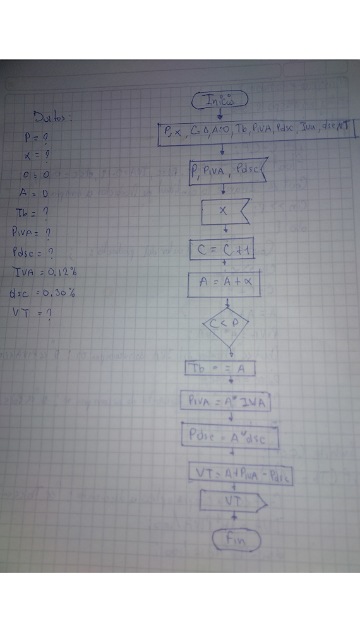 Datos:
P = ?
x = ?
C = 0
A = 0
Tb = ?
PIVA = ?
Pdsc = ?
IVA = 0,12%
dsc = 0,30%
VT = ?
Inicio
P, x, C=0, A=0, Tb, PIVA, Pdsc, Iva, dsc, VT
P, PIVA, Pdsc
x
C = C+1
A = A + x
C < P
Tb = = A
PIVA = A * IVA
Pdsc = A * dsc
VT = A + PIVA - Pdsc
VT
Fin